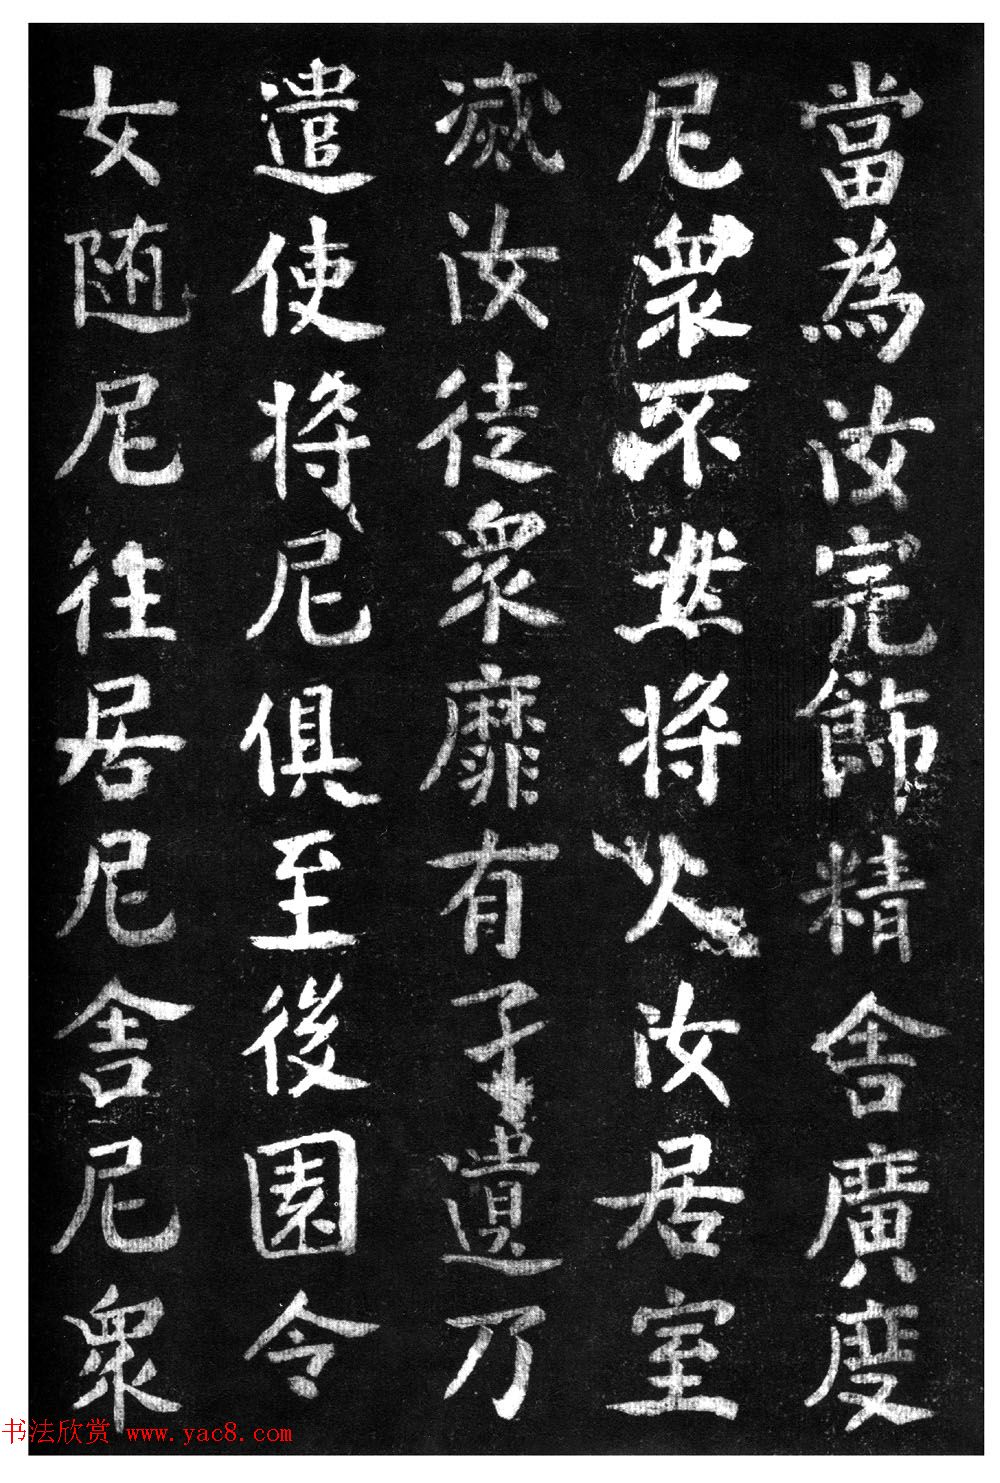 當為汝完飾精舍廣度
尼眾不然將火汝居室
滅汝徒眾靡有孑遺乃
遣使將尼俱至後園令
女随尼往居尼舍尼眾
书法欣赏 www.yac8.com